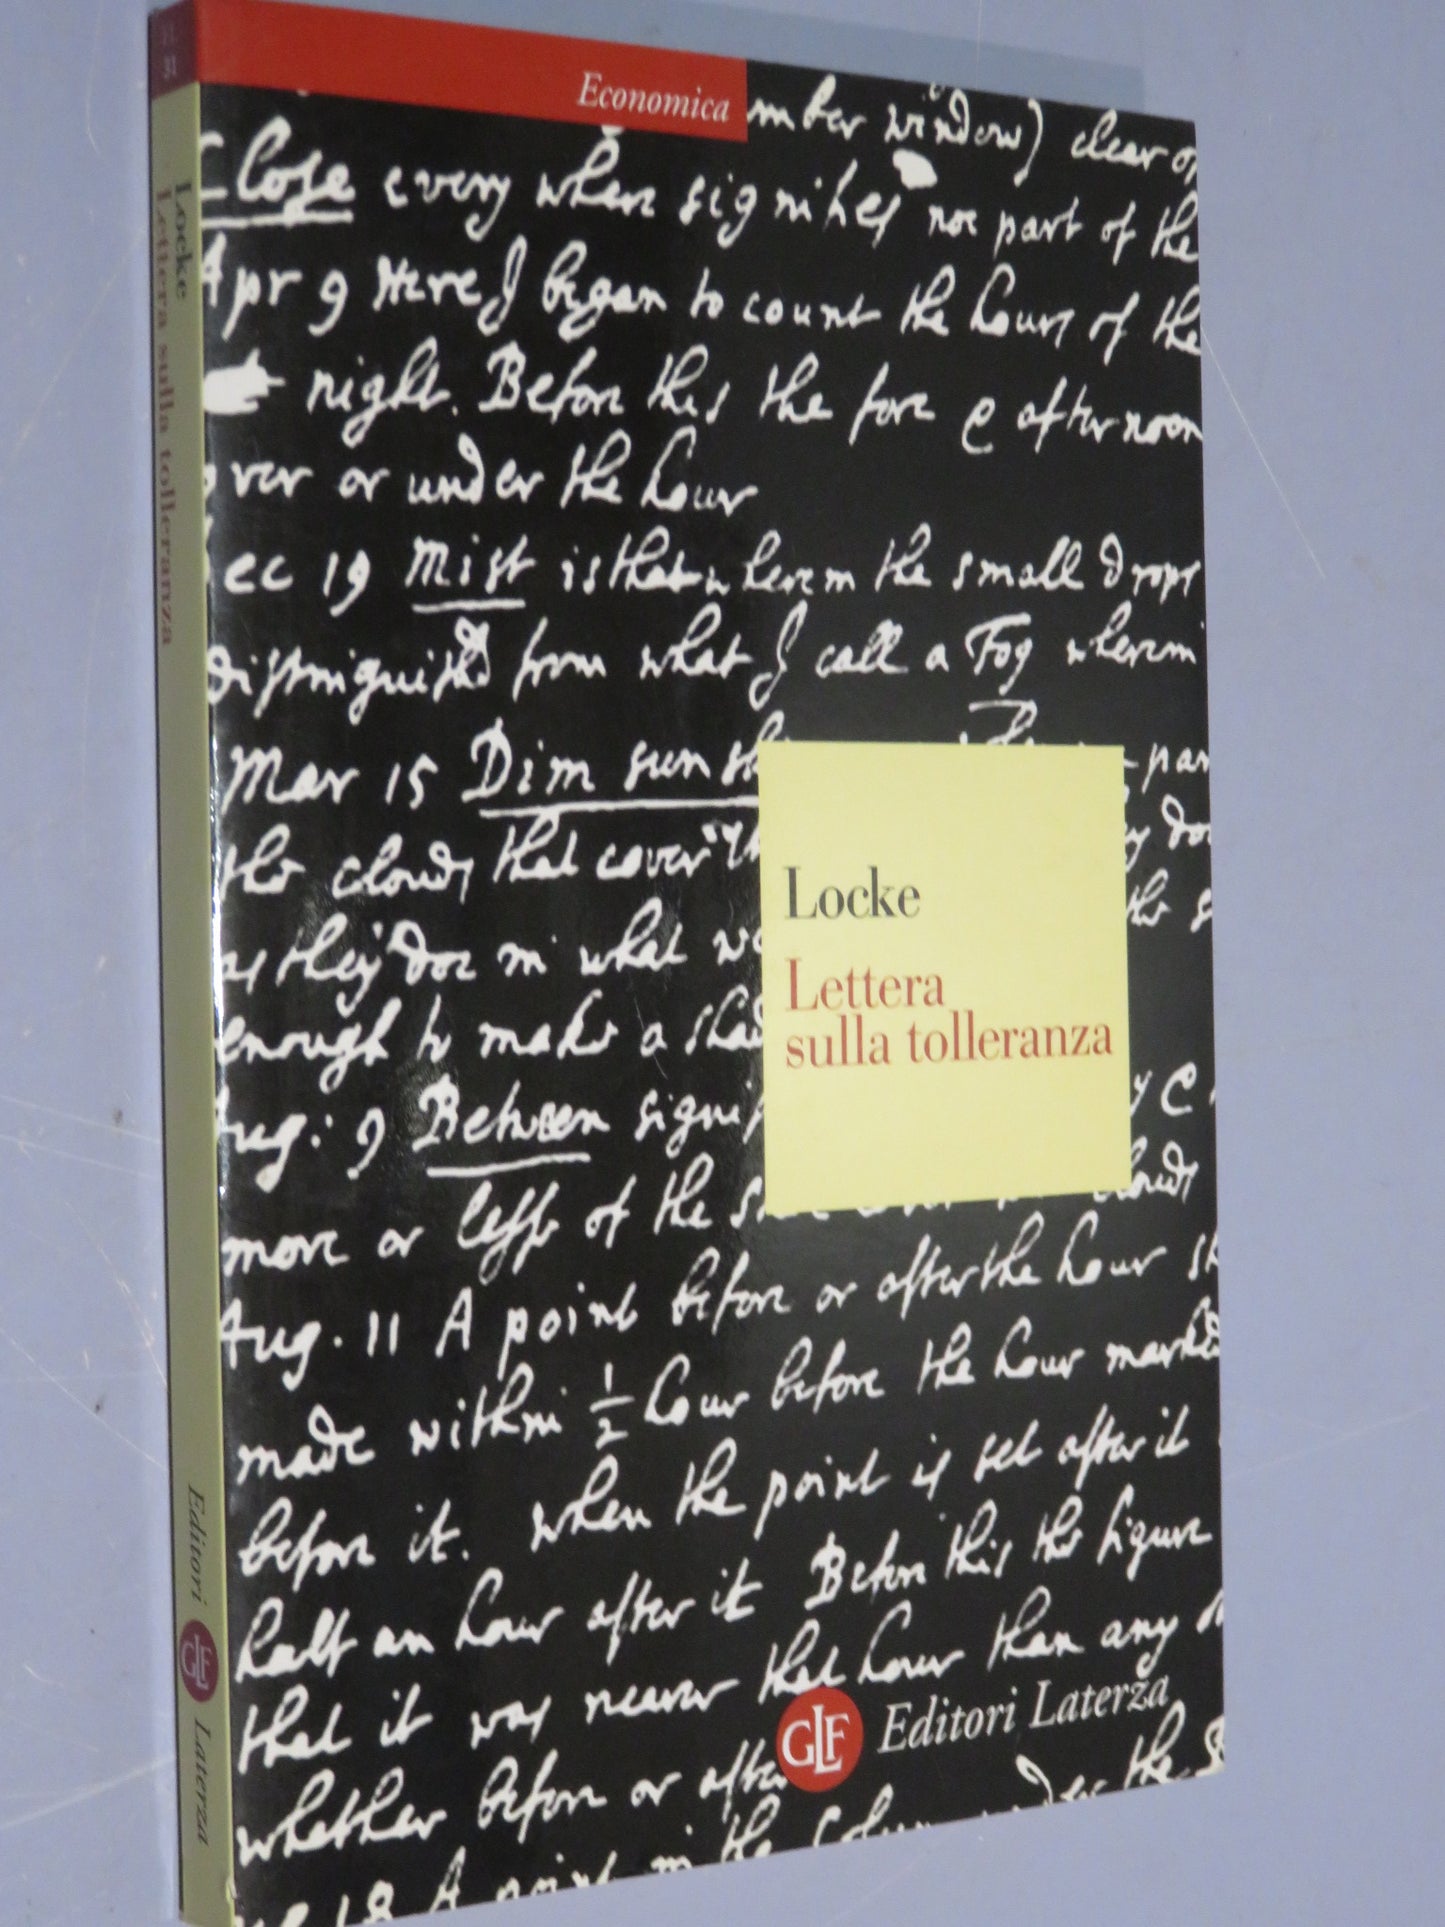 Economica
mber window) clear or
Close every where signifies noe part of the
Apr 9 Here I began to count the hours of the
night. Before this the fore & afternoon
over or under the hour
Dec 19 Mist is that wherein the small drops
distinguishd from what I call a Fog wherein
Mar 15 Dim sunsh
the clouds that cover par
as they doe in what the s
enough to make a shad
Aug: 9 Between signif
more or lesse of the clouds
Aug. 11 A point before or after the hour
made within 1/2 hour before the hour marked
before it. when the point is set after it
half an hour after it Before this the figure
that it was nearer that hour than any
whether before or after
18 A point in the Colum under the
Locke
Lettera
sulla tolleranza
GLF Editori Laterza
31
Locke
Lettera sulla tolleranza
Editori GLF Laterza